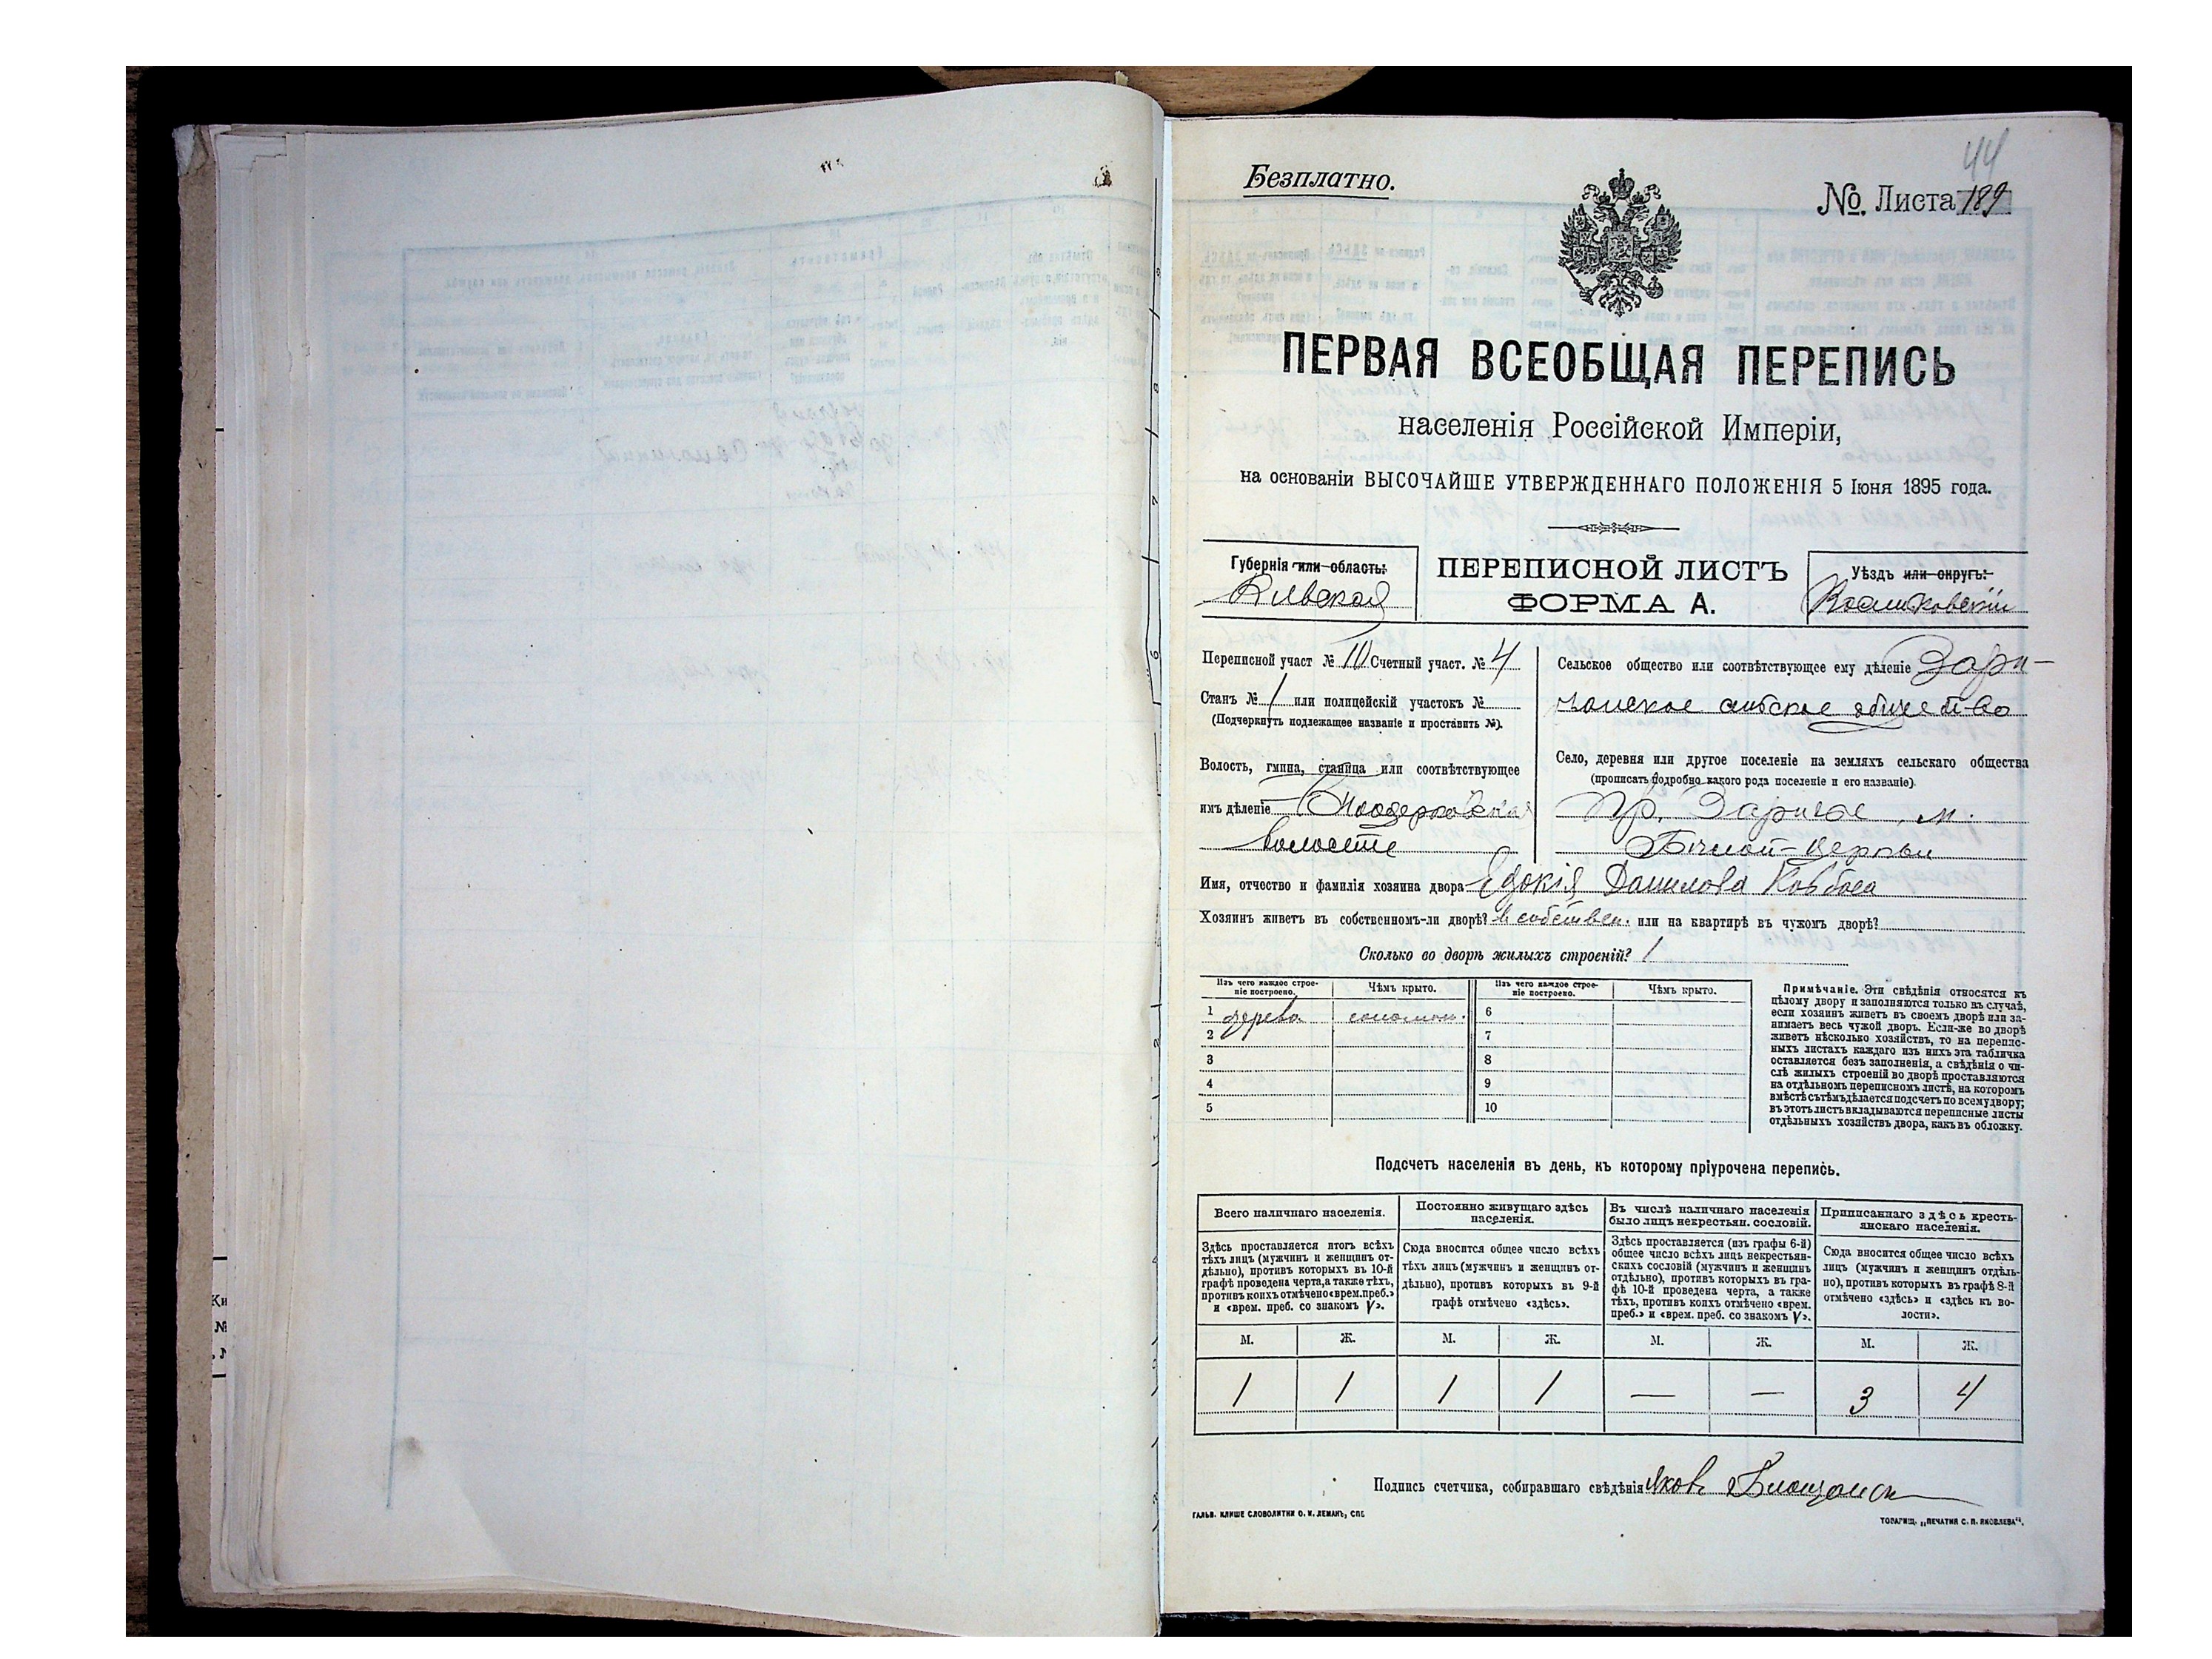 44
Безплатно.
№. Листа 189
ПЕРВАЯ ВСЕОБЩАЯ ПЕРЕПИСЬ
населенія Россійской Имперіи,
на основаніи ВЫСОЧАЙШЕ УТВЕРЖДЕННАГО ПОЛОЖЕНІЯ 5 Іюня 1895 года.
Губернія или область:
Кіевская
ПЕРЕПИСНОЙ ЛИСТЪ
ФОРМА А.
Уѣздъ или округъ:
Васильковскій
Переписной участ № III Счетный участ. № 4
Станъ № 1 или полицейскій участокъ №
(Подчеркнуть подлежащее названіе и проставить №).
Волость, гмина, станица или соотвѣтствующее
имъ дѣленіе Бѣлоцерковская
волость
Сельское общество или соотвѣтствующее ему дѣленіе Зари-
чанское сельское общество
Село, деревня или другое поселеніе на земляхъ сельскаго общества
(прописать подробно какого рода поселеніе и его названіе).
пр. Заричье, м.
Бѣлой-Церкви
Имя, отчество и фамилія хозяина двора Едокія Данилова Ковбаса
Хозяинъ живетъ въ собственномъ-ли дворѣ? в собствен. или на квартирѣ въ чужомъ дворѣ?
Сколько во дворѣ жилыхъ строеній? 1
Изъ чего каждое строе-
ніе построено.
Чѣмъ крыто.
Изъ чего каждое строе-
ніе построено.
Чѣмъ крыто.
1 дерева солом. 6
2 7
3 8
4 9
5 10
Примѣчаніе. Эти свѣдѣнія относятся къ
цѣлому двору и заполняются только въ случаѣ,
если хозяинъ живетъ въ своемъ дворѣ или за-
нимаетъ весь чужой дворъ. Если-же во дворѣ
живетъ нѣсколько хозяйствъ, то на перепис-
ныхъ листахъ каждаго изъ нихъ эта табличка
оставляется безъ заполненія, а свѣдѣнія о чи-
слѣ жилыхъ строеній во дворѣ проставляются
на отдѣльномъ переписномъ листѣ, на которомъ
вмѣстѣ съ тѣмъ дѣлается подсчетъ по всему двору;
въ этотъ листъ вкладываются переписные листы
отдѣльныхъ хозяйствъ двора, какъ въ обложку.
Подсчетъ населенія въ день, къ которому пріурочена перепись.
Всего наличнаго населенія.
Постоянно живущаго здѣсь
населенія.
Въ числѣ наличнаго населенія
было лицъ некрестьян. сословій.
Приписаннаго здѣсь кресть-
янскаго населенія.
Здѣсь проставляется итогъ всѣхъ
тѣхъ лицъ (мужчинъ и женщинъ от-
дѣльно), противъ которыхъ въ 10-й
графѣ проведена черта, а также тѣхъ,
противъ коихъ отмѣчено «врем. преб.»
и «врем. преб. со знакомъ V».
Сюда вносится общее число всѣхъ
тѣхъ лицъ (мужчинъ и женщинъ от-
дѣльно), противъ которыхъ въ 9-й
графѣ отмѣчено «здѣсь».
Здѣсь проставляется (изъ графы 6-й)
общее число всѣхъ лицъ некрестьян-
скихъ сословій (мужчинъ и женщинъ
отдѣльно), противъ которыхъ въ гра-
фѣ 10-й проведена черта, а также
тѣхъ, противъ коихъ отмѣчено «врем.
преб.» и «врем. преб. со знакомъ V».
Сюда вносится общее число всѣхъ
лицъ (мужчинъ и женщинъ отдѣль-
но), противъ которыхъ въ графѣ 8-й
отмѣчено «здѣсь» и «здѣсь къ во-
лости».
М. Ж. М. Ж. М. Ж. М. Ж.
1 1 1 1 — — 3 4
Подпись счетчика, собиравшаго свѣдѣнія Яковъ
ГАЛЬВ. КЛИШЕ СЛОВОЛИТНИ О. И. ЛЕМАНЪ, СПБ
ТОВАРИЩ. „ПЕЧАТНЯ С. П. ЯКОВЛЕВА".